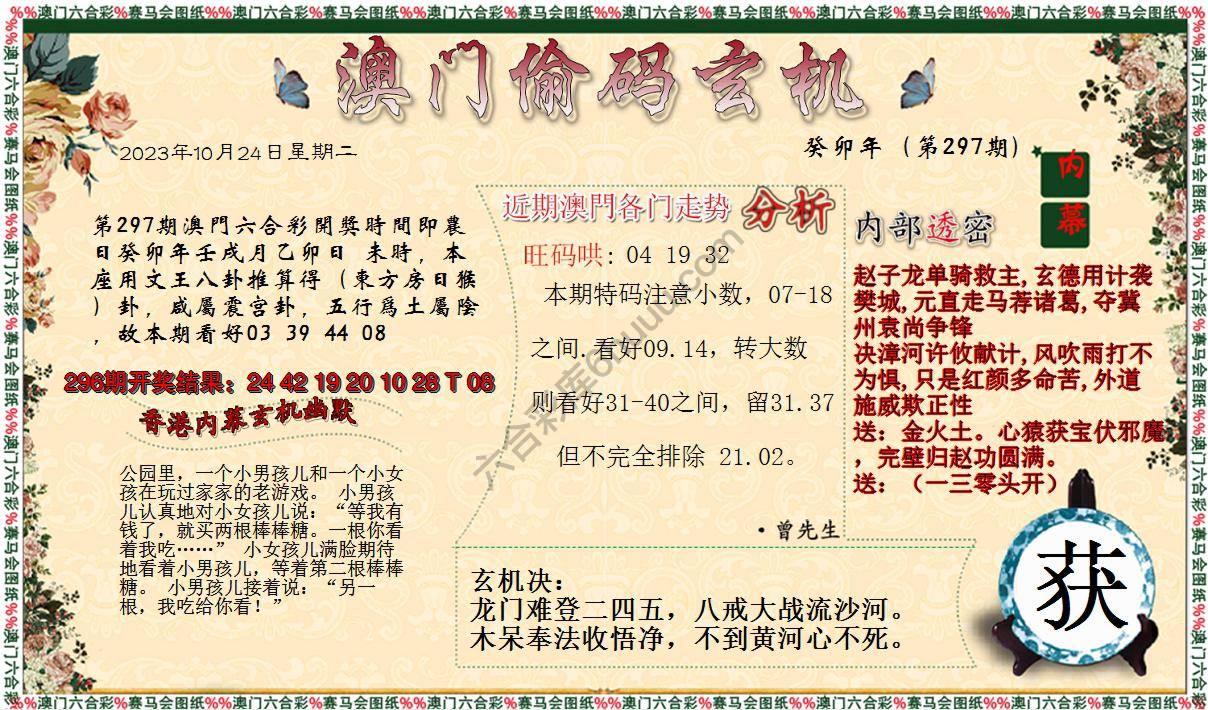 %%澳门六合彩%赛马会图纸%%澳门六合彩%赛马会图纸%%澳门六合彩%赛马会图纸%%澳门六合彩%赛马会图纸%%澳门六合彩%赛马会图纸%%澳门六合彩%赛马会图纸%%
澳门偷码玄机
2023年10月24日星期二
癸卯年（第297期）
内
幕
第297期澳門六合彩開獎時間即農
日癸卯年壬戌月乙卯日 未時，本
座用文王八卦推算得（東方房日猴
）卦，咸屬震宫卦，五行爲土屬陰
，故本期看好03 39 44 08
296期开奖结果：24 42 19 20 10 28 T 08
香港内幕玄机幽默
公园里，一个小男孩儿和一个小女
孩在玩过家家的老游戏。 小男孩
儿认真地对小女孩儿说：“等我有
钱了，就买两根棒棒糖。一根你看
着我吃……” 小女孩儿满脸期待
地看着小男孩儿，等着第二根棒棒
糖。 小男孩儿接着说：“另一
根，我吃给你看！”
近期澳門各门走势 分析
旺码哄: 04 19 32
本期特码注意小数，07-18
之间.看好09.14，转大数
则看好31-40之间，留31.37
但不完全排除 21.02。
·曾先生
内部透密
赵子龙单骑救主,玄德用计袭
樊城,元直走马荐诸葛,夺冀
州袁尚争锋
决漳河许攸献计,风吹雨打不
为惧,只是红颜多命苦,外道
施威欺正性
送：金火土。心猿获宝伏邪魔
，完壁归赵功圆满。
送：（一三零头开）
玄机决：
龙门难登二四五，八戒大战流沙河。
木呆奉法收悟净，不到黄河心不死。
获